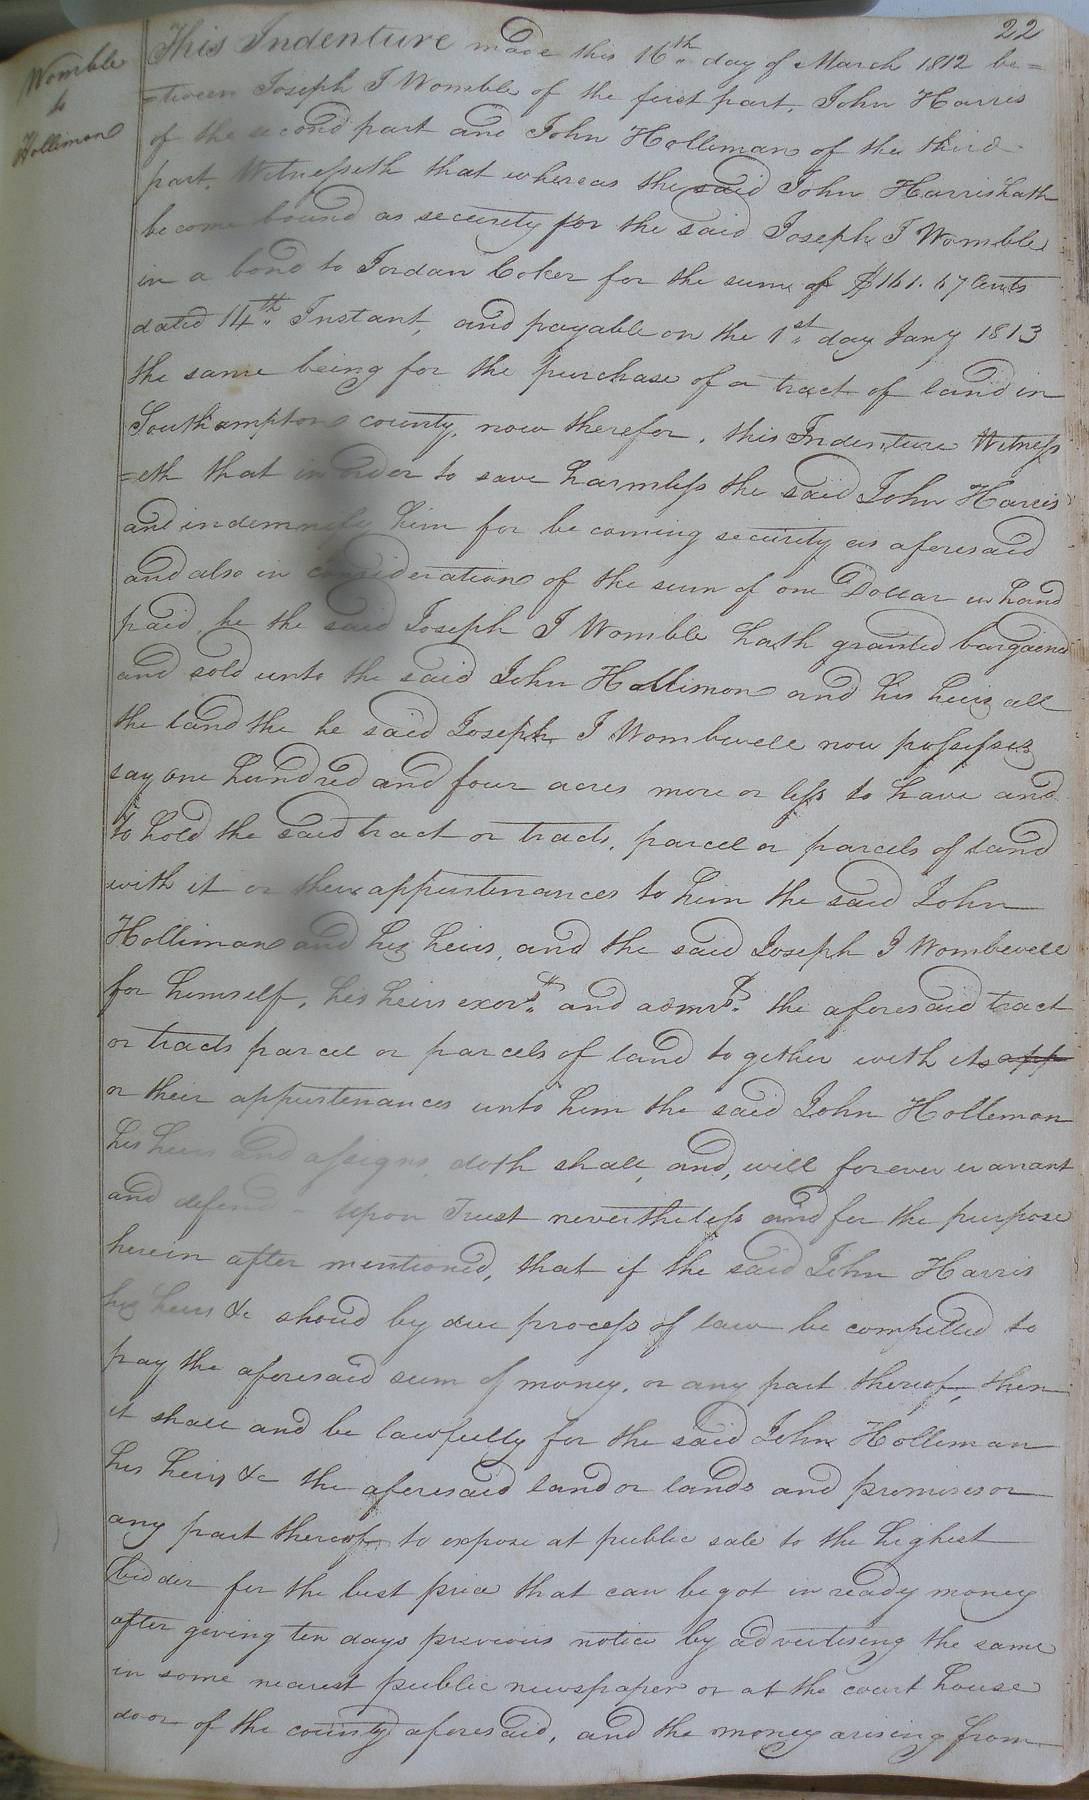 22
Womble
to
Holliman
This Indenture made this 16th day of March 1812 be=
=tween Joseph J Womble of the first part, John Harris
of the second part and John Holliman of the third
part. Witnesseth that whereas the said John Harris hath
become bound as security for the said Joseph J Womble
in a bond to Jordan Coker for the sum of $161.67 Cents
dated 14th Instant, and payable on the 1st day Jany 1813
the same being for the purchase of a tract of land in
Southampton county, now therefor, this Indenture Witness
=eth that in order to save harmless the said John Harris
and indemnify him for becoming security as aforesaid
and also in consideration of the sum of one Dollar in hand
paid he the said Joseph J Womble hath granted bargaend
and sold unto the said John Holliman and his heirs all
the land the he said Joseph J Wombwell now possesses
say one hundred and four acres more or less to have and
to hold the said tract or tracts, parcel or parcels of land
with it or their appurtenances to him the said John
Holliman and his heirs, and the said Joseph J Wombwell
for himself, his heirs exors. and admrs. the aforesaid tract
or tracts parcel or parcels of land together with its app
or their appurtenances unto him the said John Holleman
his heirs and assigns, doth shall, and, will forever warrant
and defend - Upon Trust nevertheless and for the purpose
herein after mentioned, that if the said John Harris
his heirs &c shoud by due process of law be compelled to
pay the aforesaid sum of money, or any part thereof, then
it shall and be lawfully for the said John Holliman
his heirs &c the aforesaid land or lands and premises or
any part thereof to expose at public sale to the highest
bidder for the best price that can be got in ready money
after giving ten days previous notice by advertising the same
in some nearest public newspaper or at the court house
door of the county aforesaid, and the money arising from